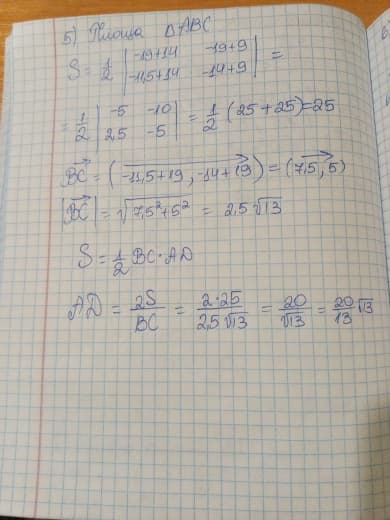 5) Площа ΔABC
S = 1/2 | -19+14 -19+9 |
| -11,5+14 -14+9 | =
= 1/2 | -5 -10 |
| 2,5 -5 | = 1/2 (25+25)=25
BC = (-11,5+19, -14+19) = (7,5, 5)
|BC| = √7,5²+5² = 2,5 √13
S = 1/2 BC · AD
AD = 2S/BC = 2·25/2,5 √13 = 20/√13 = 20/13 √13